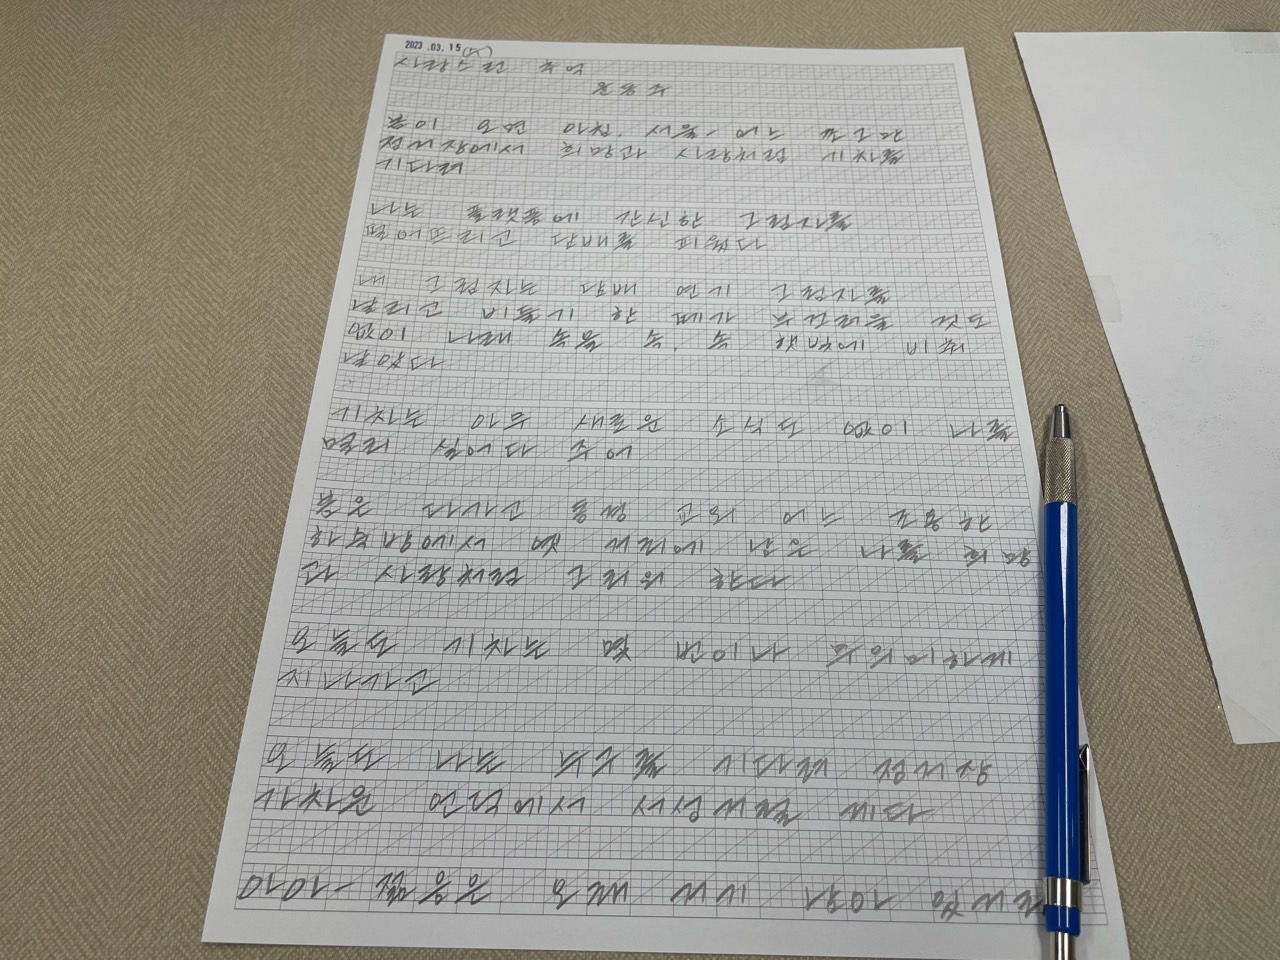 2023.03.15(수)
사랑스런 추억
윤동주
봄이 오면 아침, 서울- 어느 쪼그만
정거장에서 희망과 사랑처럼 기차를
기다려
나는 플랫폼에 간신한 그림자를
떨어뜨리고 담배를 피웠다
내 그림자는 담배 연기 그림자를
날리고 비둘기 한 떼가 부끄러움 것도
없이 나래 속을 속, 속 햇빛에 비춰
날았다
기차는 아무 새로운 소식도 없이 나를
멀리 실어다 주어
봄은 다가고 동경 교외 어느 조용한
하숙방에서 옛 거리에 남은 나를 희망
과 사랑처럼 그리워 한다
오늘도 기차는 몇 번이나 무의미하게
지나가고
오늘도 나는 누구를 기다려 정거장
가차운 언덕에서 서성거릴 게다
아아- 젊음은 오래 거기 남아 있거라